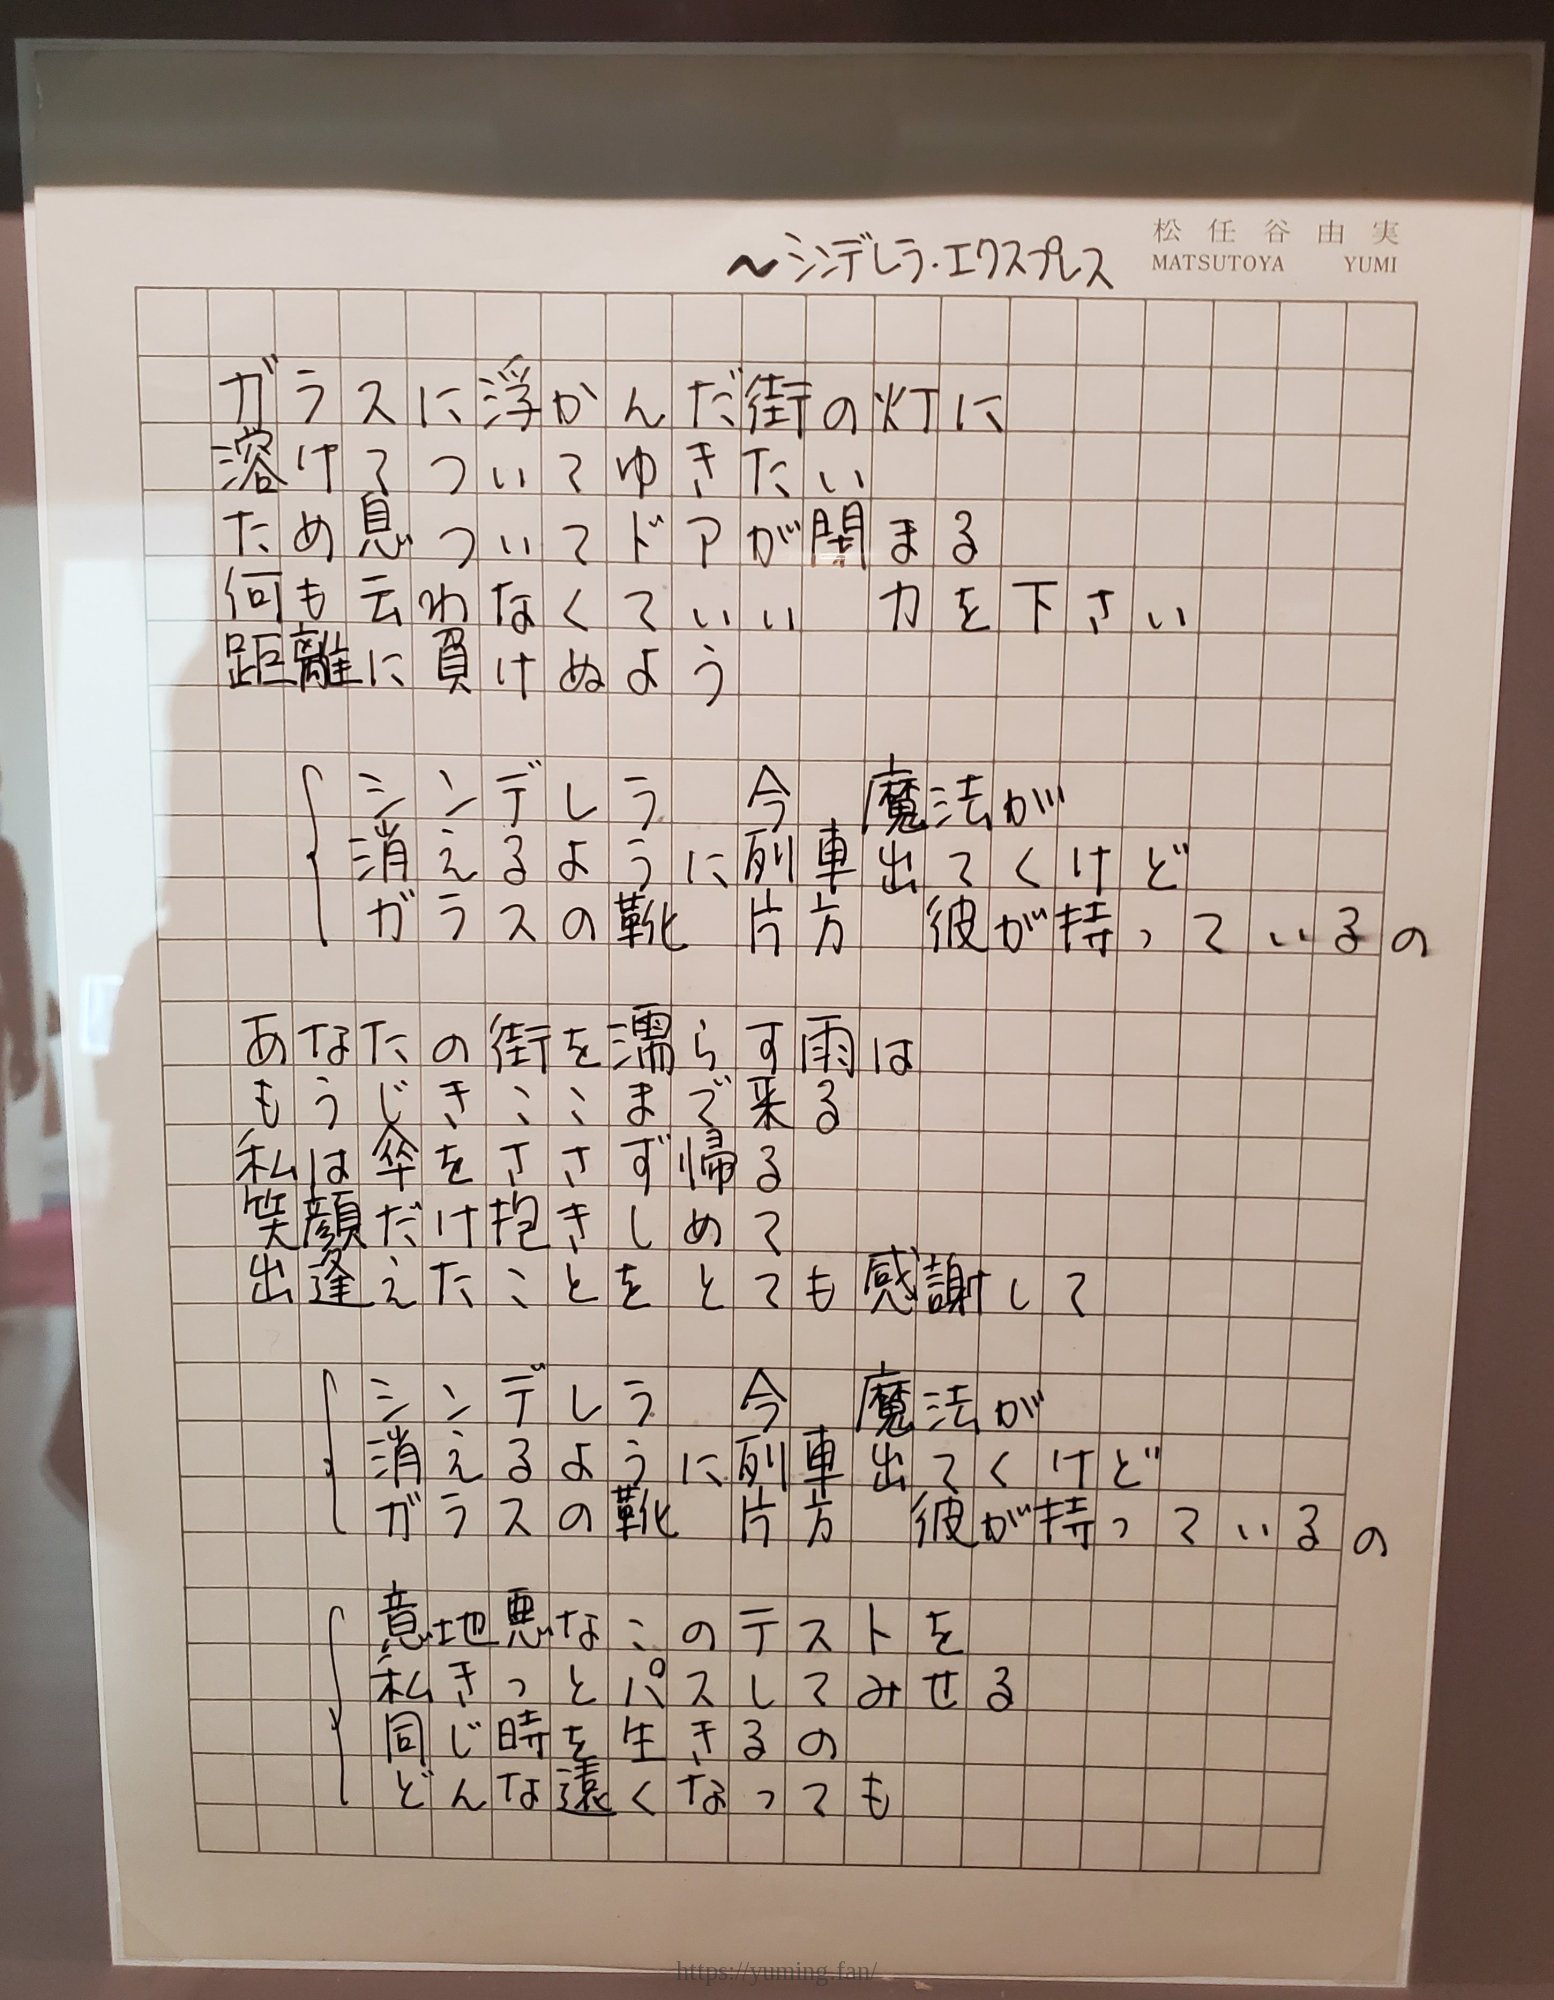 松任谷由実
MATSUTOYA YUMI
〜シンデレラ・エクスプレス
ガラスに浮かんだ街の灯に
溶けてついてゆきたい
ため息ついてドアが閉まる
何も云わなくていい 力を下さい
距離に負けぬよう
シンデレラ 今 魔法が
消えるように列車出てくけど
ガラスの靴 片方 彼が持っているの
あなたの街を濡らす雨は
もうじきここまで来る
私は傘をささず帰る
笑顔だけ抱きしめて
出逢えたことをとても感謝して
シンデレラ 今 魔法が
消えるように列車出てくけど
ガラスの靴 片方 彼が持っているの
意地悪なこのテストを
私きっとパスしてみせる
同じ時を生きるの
どんな遠くなっても
https://yuming.fan/